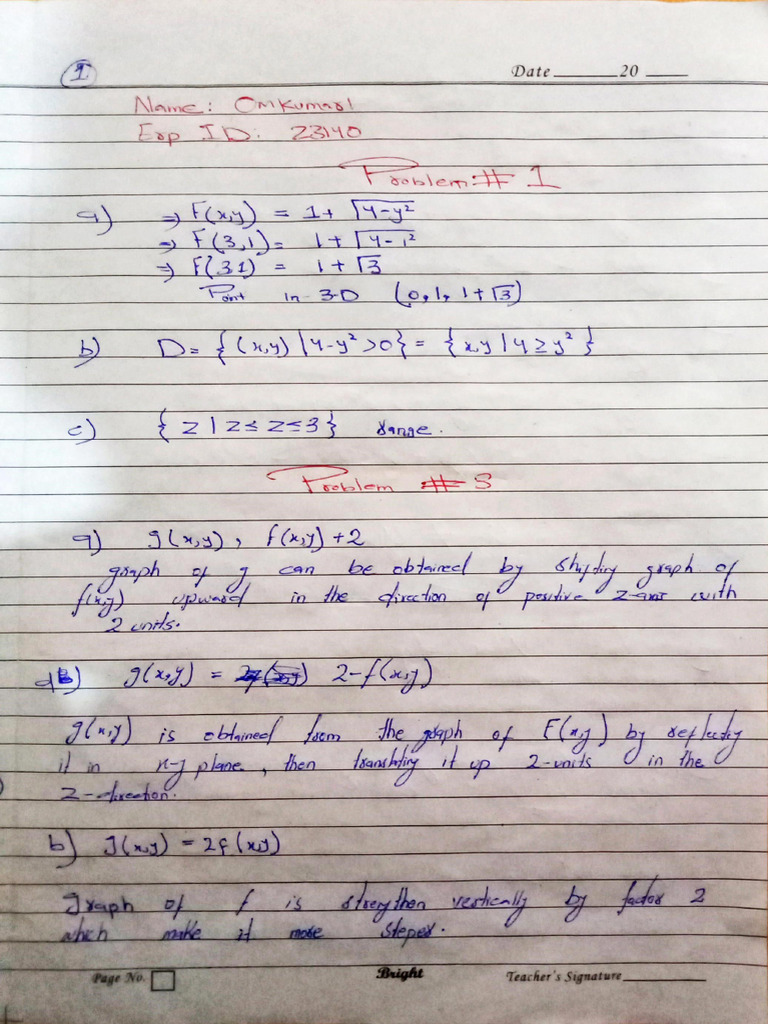 1
Date ______ 20 ____
Name: Omkumarl
Erp ID: 23140
Problem # 1
a) ⇒ F(x,y) = 1+ √4-y²
⇒ F(3,1) = 1+√4-1²
⇒ F(31) = 1+√3
Point in 3-D (0,1,1+√3)
b) D= {(x,y) | 4-y² >0} = {x,y | 4≥y²}
c) {z | z≤ z≤3} range.
Problem # 3
a) g(x,y), f(x,y)+2
graph of g can be obtained by shifting graph of
f(x,y) upward in the direction of positive z-axis with
2 units.
d) g(x,y) = 2-f(x,y)
g(x,y) is obtained from the graph of F(x,y) by reflecting
it in x-y plane, then translating it up 2-units in the
z-direction.
b) g(x,y) = 2f(x,y)
graph of f is strengthen vertically by factor 2
which make it more steper.
Page No.
Bright
Teacher's Signature